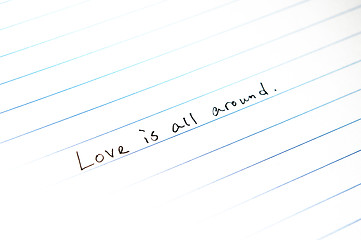 Love is all around.